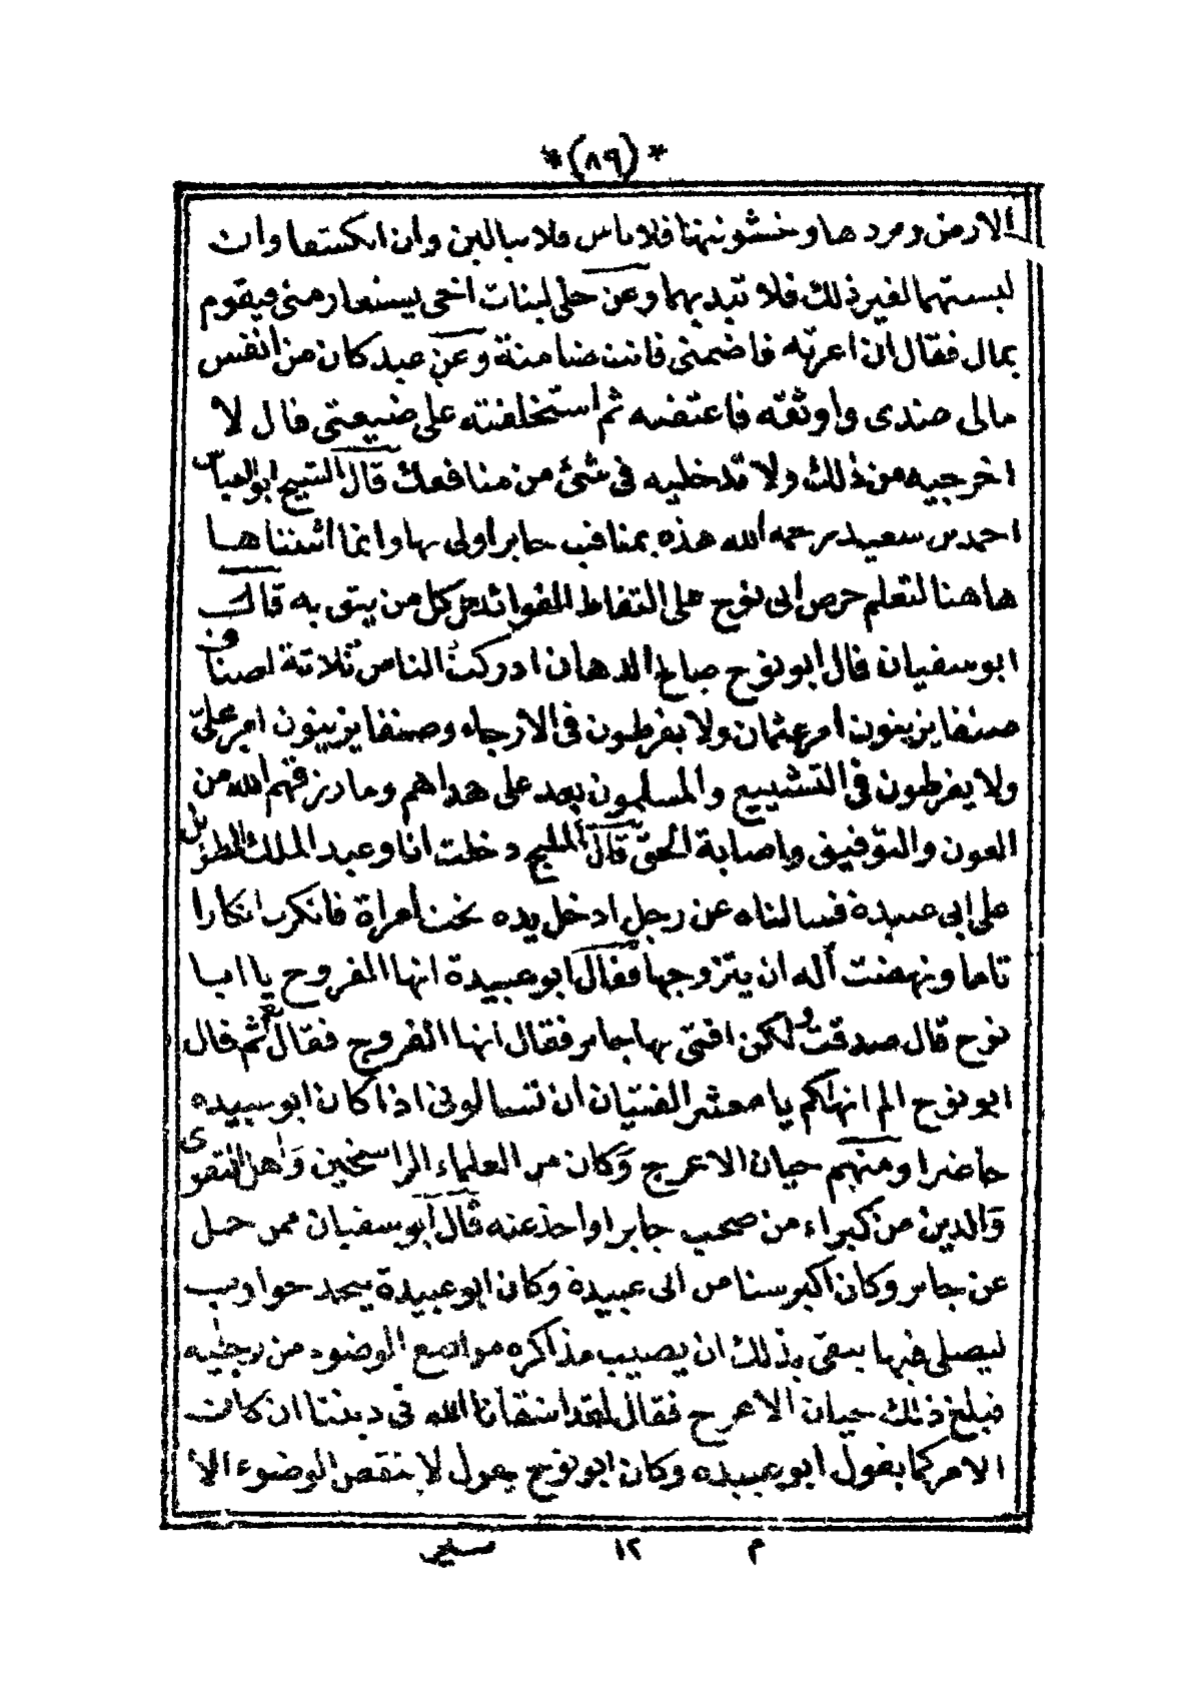 *(٨٩)*
الارض وبردها وخشونتها فلا باس فلا يبالين وان انكشفا وان
لبستهما لغير ذلك فلا تبديهما وعن حلى لبنات اخى يستعار منى فيقوم
بمال فقال ان اعرته فاضمنى فانت ضامنة وعن عبد كان من انفس
مالى عندى واوثقه فاعتقته ثم استخلفته على ضيعتى قال لا
اخرجيه من ذلك ولا تدخليه فى شئ من منافعك قال الشيخ ابو العباس
احمد بن سعيد رحمه الله هذه بمناقب جابر اولى بها وانما اثبتناها
هاهنا لتعلم حرص ابى نوح على التقاط الفوائد عن كل من يثق به قال
ابو سفيان قال ابو نوح صالح الدهان ادركت الناس ثلاثة اصناف
صنفا يزينون امر عثمان ولا يفرطون فى الارجاء وصنفا يزينون امر على
ولا يفرطون فى التشييع والمسلمون بعد على هداهم وما رزقهم الله من
العون والتوفيق واصابة الحق قال المليح دخلت انا وعبد الملك الطويل
على ابى عبيدة فسالناه عن رجل ادخل يده تحت امراة فانكر انكارا
تاما ونهضت اله ان يتزوجها فقال ابو عبيدة انها الفروج يا ابا
نوح قال صدقت ولكن افتى بها جابر فقال انها الفروج فقال نعم ثم قال
ابو نوح الم انهاكم يا معشر الفتيان ان تسالونى اذا كان ابو عبيده
حاضرا ومنهم حيان الاعرج وكان من العلماء الراسخين واهل التقوى
والدين من كبراء من صحب جابرا واخذ عنه قال ابو سفيان ممن حمل
عن جابر وكان اكبر سنا من ابى عبيدة وكان ابو عبيدة يتخذ جواريب
ليصلى فيها يبقى بذلك ان يصيب مذاكره مواضع الوضوء من رجليه
فبلغ ذلك حيان الاعرج فقال لقد اشقانا الله فى ديننا ان كان
الامر كما يقول ابو عبيده وكان ابو نوح يقول لا ينقض الوضوء الا
م ١٢